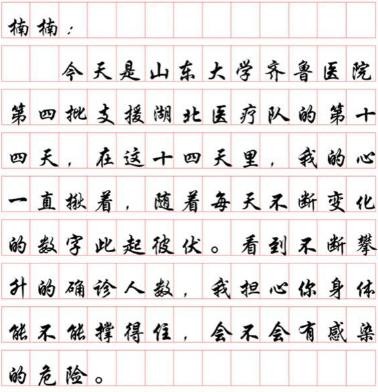 楠楠：
今天是山东大学齐鲁医院
第四批支援湖北医疗队的第十
四天，在这十四天里，我的心
一直揪着，随着每天不断变化
的数字此起彼伏。看到不断攀
升的确诊人数，我担心你身体
能不能撑得住，会不会有感染
的危险。